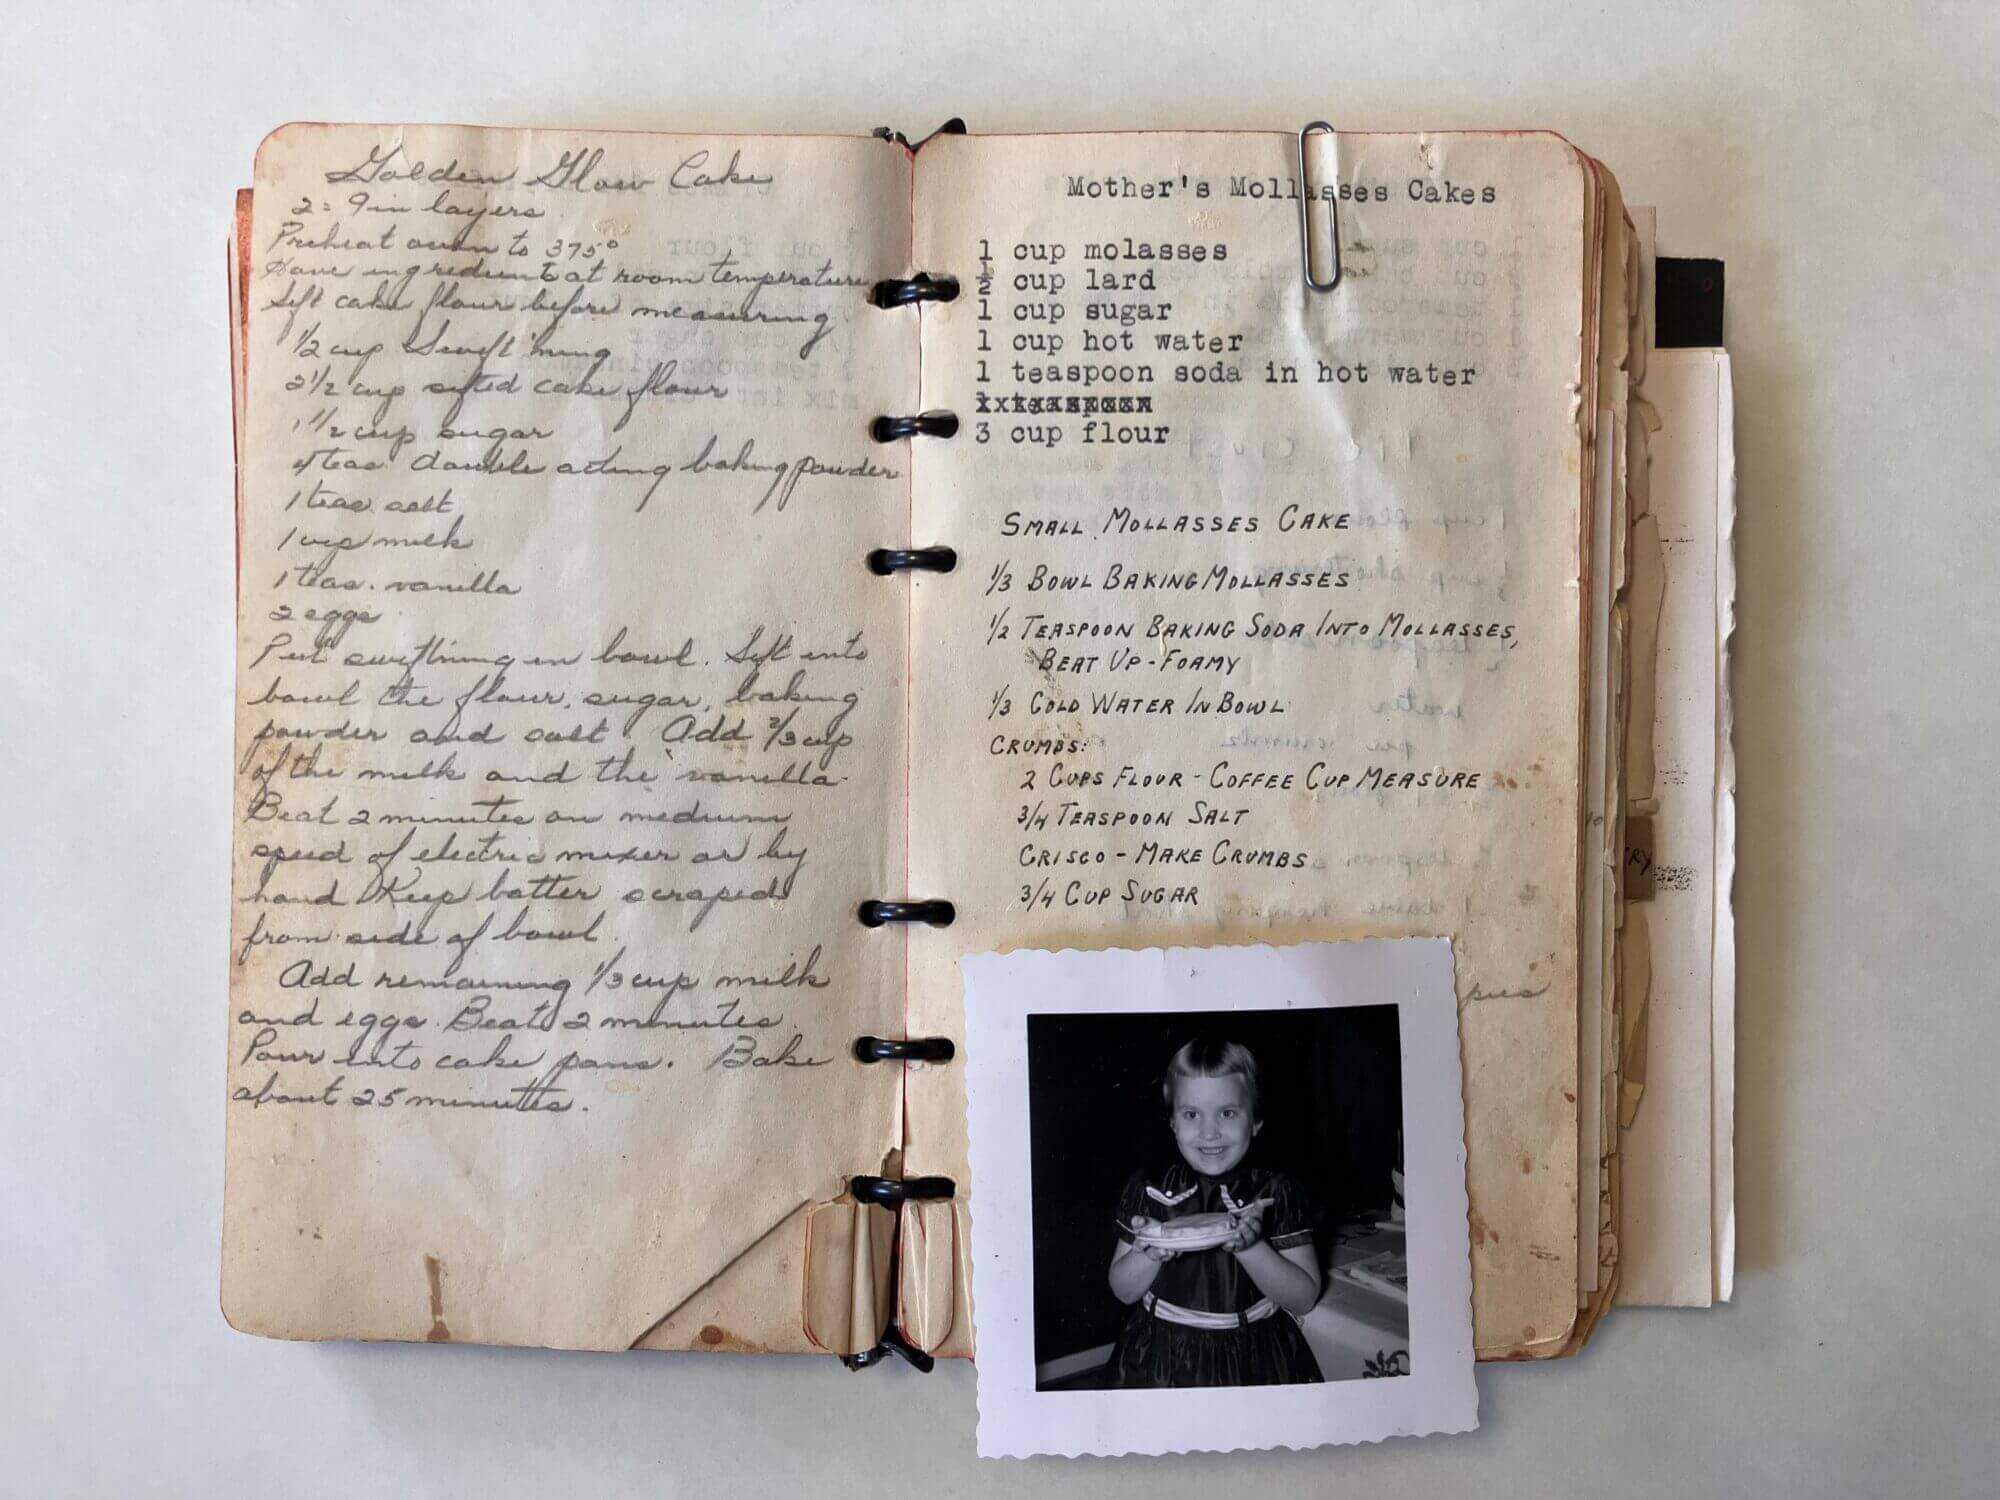 Golden Glow Cake
2 = 9 in layers
Preheat oven to 375°
Have ingredients at room temperature
Sift cake flour before measuring.
1/2 cup Swift'ning
2 1/2 cup sifted cake flour
1 1/2 cup sugar
4 teas double acting baking powder
1 teas salt
1 cup milk
1 teas. vanilla
2 eggs
Put swiftning in bowl. Sift into
bowl the flour, sugar, baking
powder and salt. Add 2/3 cup
of the milk and the vanilla.
Beat 2 minutes on medium
speed of electric mixer or by
hand Keep batter scraped
from side of bowl.
Add remaining 1/3 cup milk
and eggs. Beat 2 minutes.
Pour into cake pans. Bake
about 25 minutes.
Mother's Mollasses Cakes
1 cup molasses
½ cup lard
1 cup sugar
1 cup hot water
1 teaspoon soda in hot water
3 cup flour
SMALL MOLLASSES CAKE
1/3 BOWL BAKING MOLLASSES
1/2 TEASPOON BAKING SODA INTO MOLLASSES,
BEAT UP - FOAMY
1/3 COLD WATER IN BOWL
CRUMBS:
2 CUPS FLOUR - COFFEE CUP MEASURE
3/4 TEASPOON SALT
CRISCO - MAKE CRUMBS
3/4 CUP SUGAR
pies
RY